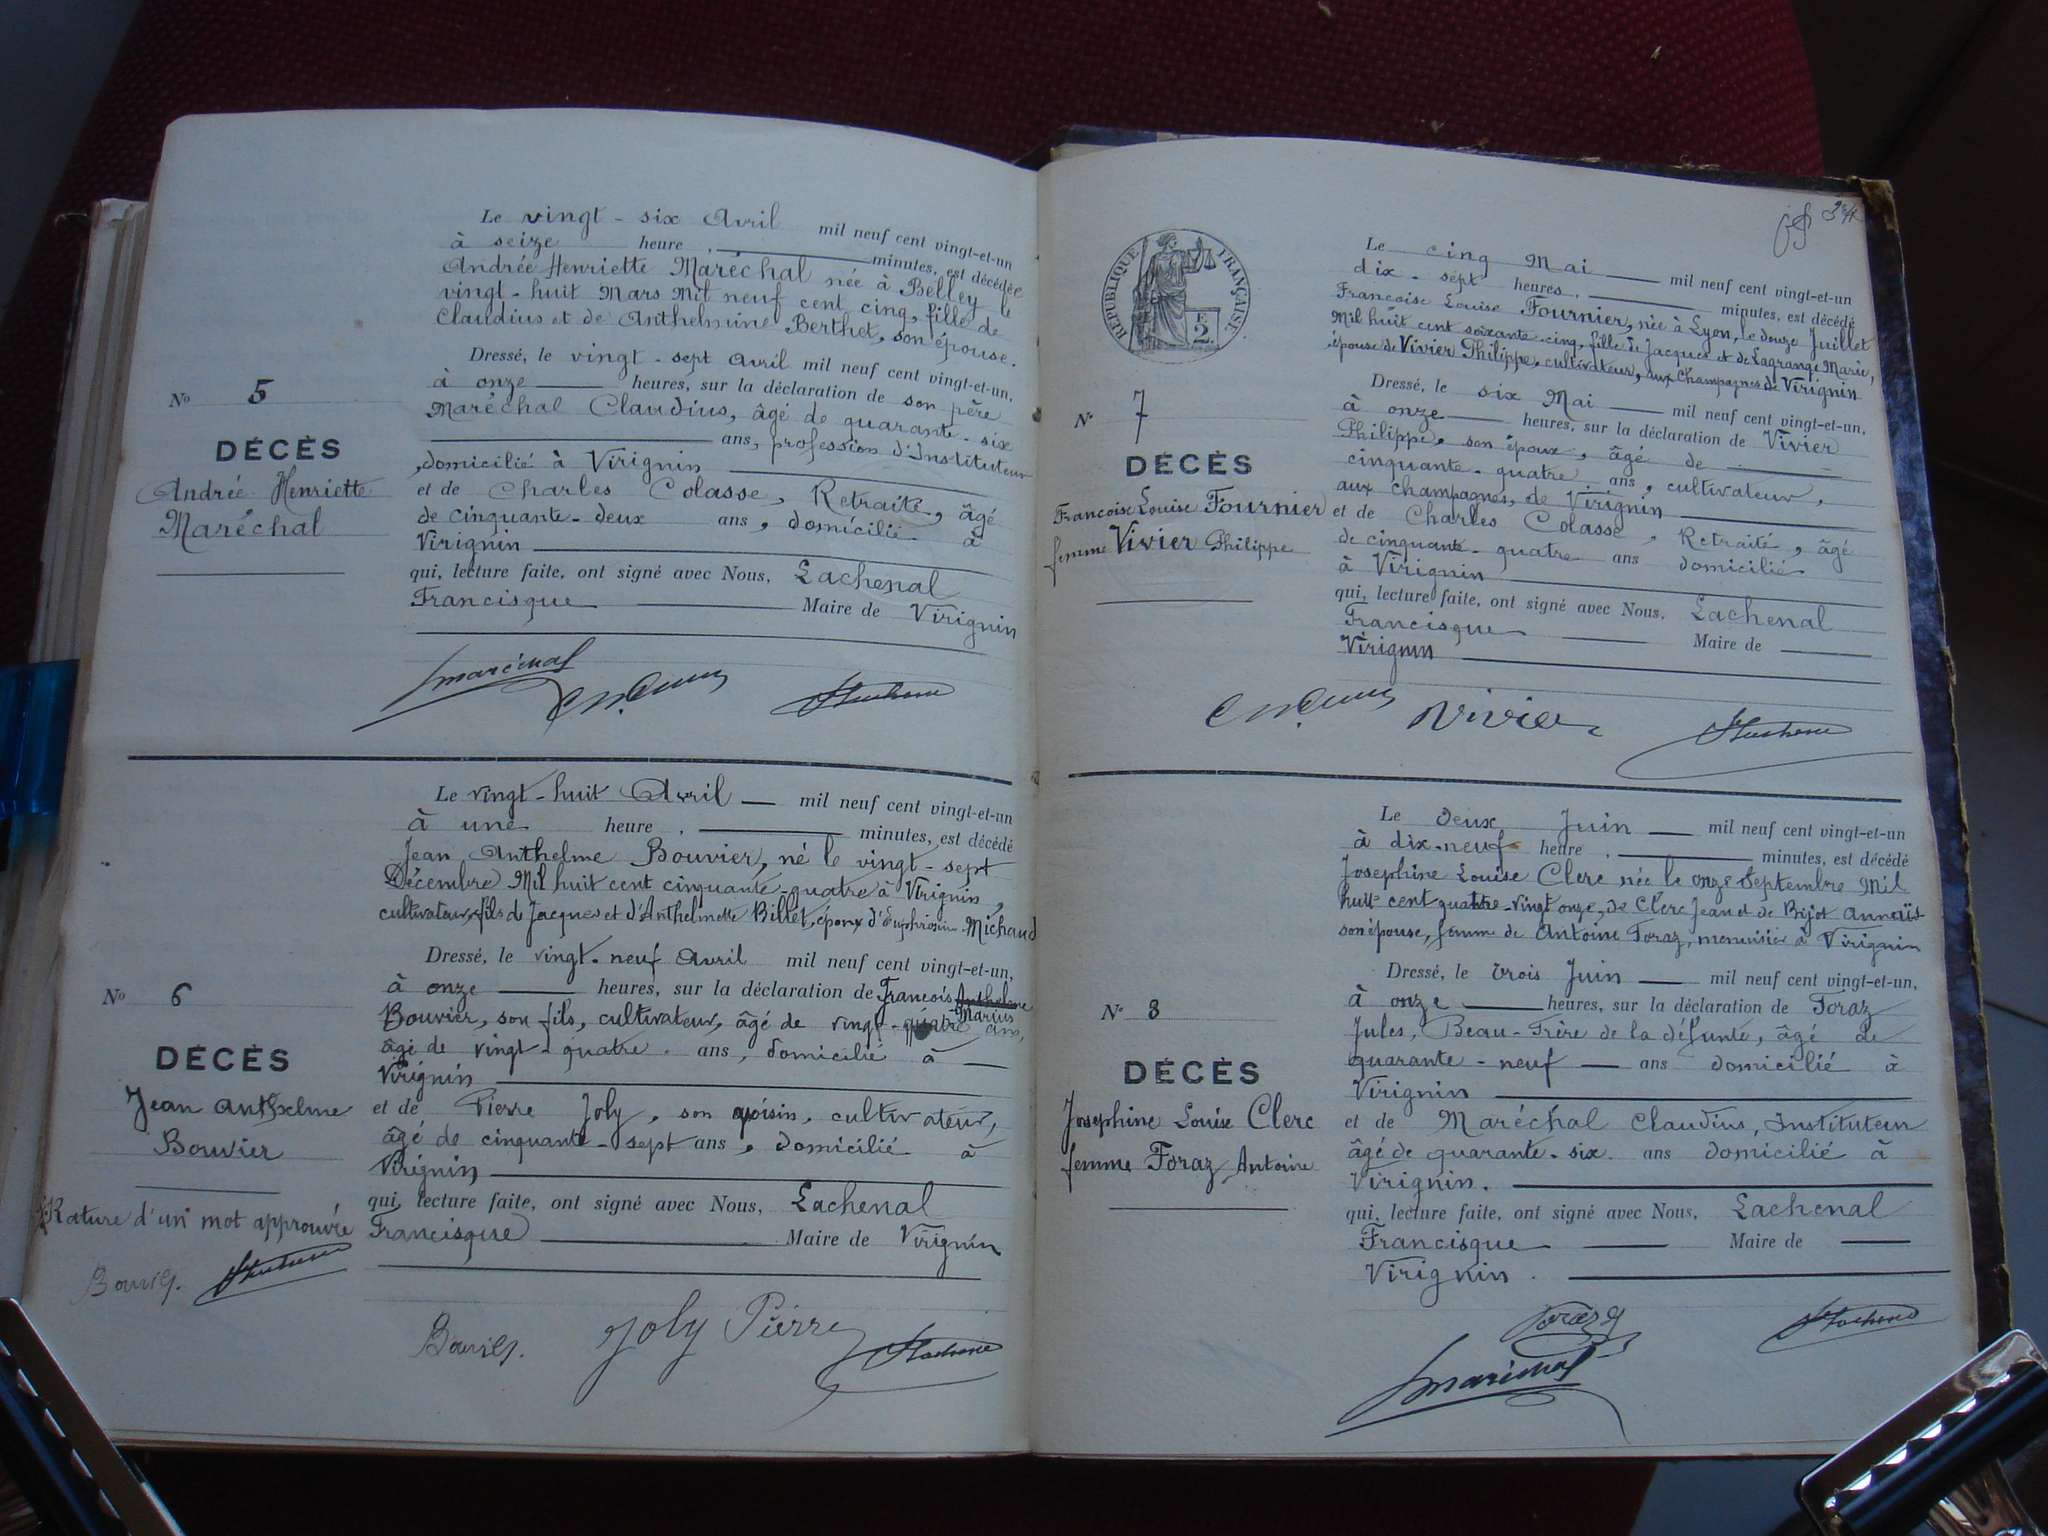 Le vingt-six Avril mil neuf cent vingt-et-un
à seize heure, minutes, est décédée
Andrée Henriette Maréchal née à Belley le
vingt-huit Mars Mil neuf cent cinq, fille de
Claudius et de Anthelmine Berthet, son épouse.
Dressé, le vingt-sept Avril mil neuf cent vingt-et-un,
à onze heures, sur la déclaration de son père
Maréchal Claudius, âgé de quarante-six
ans, profession d'Instituteur
domicilié à Virignin
et de Charles Colasse, Retraité, âgé
de cinquante-deux ans, domicilié à
Virignin
qui, lecture faite, ont signé avec Nous, Lachenal
Francisque Maire de Virignin
N° 5
DÉCÈS
Andrée Henriette
Maréchal
Maréchal
Le vingt-huit Avril mil neuf cent vingt-et-un
à une heure, minutes, est décédé
Jean Anthelme Bouvier, né le vingt-sept
Décembre Mil huit cent cinquante-quatre à Virignin,
cultivateur, fils de Jacques et d'Anthelmette Billet, époux d'Euphrosine Michaud
Dressé, le vingt-neuf Avril mil neuf cent vingt-et-un,
à onze heures, sur la déclaration de François Anthelme
Marius
Bouvier, son fils, cultivateur, âgé de vingt-quatre ans,
âgé de vingt-quatre ans, domicilié à
Virignin
et de Pierre Joly, son voisin, cultivateur,
âgé de cinquante-sept ans, domicilié à
Virignin
qui, lecture faite, ont signé avec Nous, Lachenal
Francisque Maire de Virignin
N° 6
DÉCÈS
Jean Anthelme
Bouvier
Rature d'un mot approuvée
Joly Pierre
34
RÉPUBLIQUE FRANÇAISE
2
Le cinq Mai mil neuf cent vingt-et-un
dix-sept heures, minutes, est décédé
Francoise Louise Fournier, née à Lyon, le douze Juillet
Mil huit cent soixante-cinq, fille de Jacques et de Lagrange Marie,
épouse de Vivier Philippe, cultivateur, aux Champagnes de Virignin
Dressé, le six Mai mil neuf cent vingt-et-un,
à onze heures, sur la déclaration de Vivier
Philippe, son époux, âgé de
cinquante-quatre ans, cultivateur,
aux Champagnes, de Virignin
et de Charles Colasse, Retraité, âgé
de cinquante-quatre ans domicilié
à Virignin
qui, lecture faite, ont signé avec Nous, Lachenal
Francisque Maire de
Virignin
N° 7
DÉCÈS
Francoise Louise Fournier
femme Vivier Philippe
Vivier
Le Deux Juin mil neuf cent vingt-et-un
à dix-neuf heure, minutes, est décédé
Josephine Louise Clerc née le onze Septembre Mil
huit cent quatre-vingt onze, de Clerc Jean et de Bijot Annett
son épouse, femme de Antoine Foraz, menuisier à Virignin
Dressé, le Trois Juin mil neuf cent vingt-et-un,
à onze heures, sur la déclaration de Foraz
Jules, Beau-Frère de la défunte, âgé de
quarante-neuf ans domicilié à
Virignin
et de Maréchal Claudius, Instituteur
âgé de quarante-six ans domicilié à
Virignin.
qui, lecture faite, ont signé avec Nous, Lachenal
Francisque Maire de
Virignin.
N° 8
DÉCÈS
Josephine Louise Clerc
femme Foraz Antoine
Foraz
Maréchal